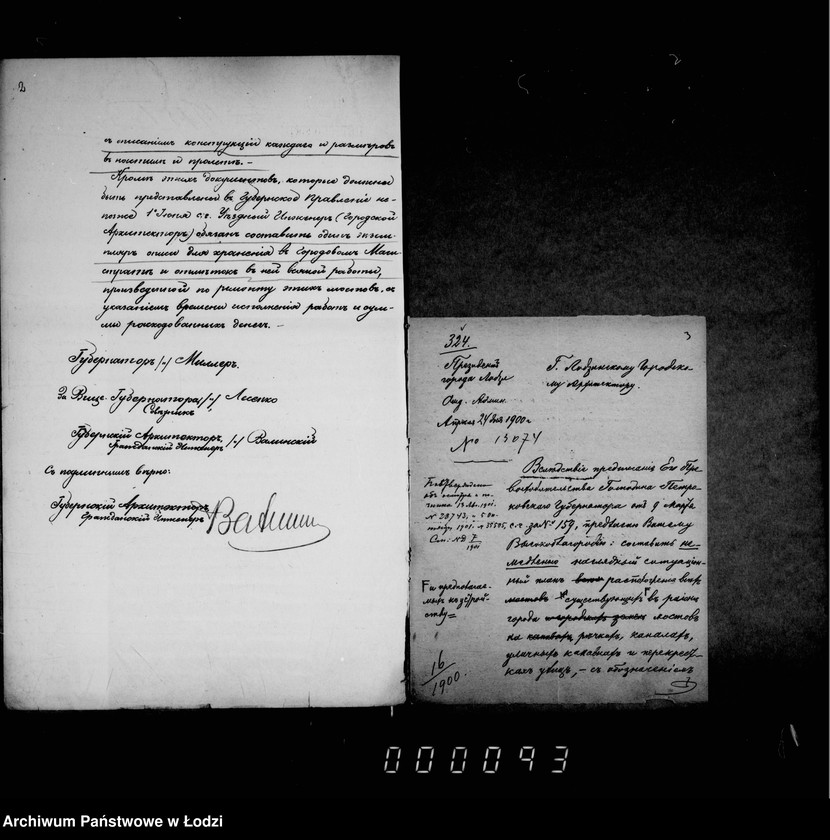 2
съ описаніемъ конструкціи каждаго и размѣровъ
въ настилѣ и пролетѣ. —
Кромѣ этихъ документовъ, которые должны
быть представлены въ Губернское Правленіе не
позже 1го Іюня с.г. Уѣздный Инженеръ (Городской
Архитекторъ) обязанъ составить одинъ экзем-
пляръ описи для храненія въ Городовомъ Маги-
стратѣ и отмѣтокъ въ ней всякой работы,
произведенной по ремонту этихъ мостовъ, съ
указаніемъ времени исполненія работъ и сум-
мы расходованныхъ денегъ. —
Губернаторъ /-/ Миллеръ.
За Вице-Губернатора /-/ Лесенко
Губернскій Архитекторъ, /-/
Гражданскій Инженеръ
Съ подлиннымъ вѣрно:
Губернскій Архитекторъ
Гражданскій Инженеръ
3
324.
Президентъ
города Лодзи
Отд. Админ.
Апрѣля 24 дня 1900 г.
№ 13074
Г. Лодзинскому Городско-
му Архитектору.
Вслѣдствіе предписанія Его Пре-
восходительства Господина Петро-
ковскаго Губернатора отъ 9 Марта
с.г. за № 159, предлагаю Вашему
Высокоблагородію: составить не-
медленно наглядный ситуацион-
ный планъ расположенія всѣхъ
мостовъ существующихъ въ районѣ
города мостовъ
на рѣчкахъ, каналахъ,
уличныхъ канавахъ и перекрест-
кахъ улицъ, — съ обозначеніемъ
№ 28743,
См: №
1901
и предполагае-
мыхъ къ устрой-
ству
16
1900.
000093
Archiwum Państwowe w Łodzi